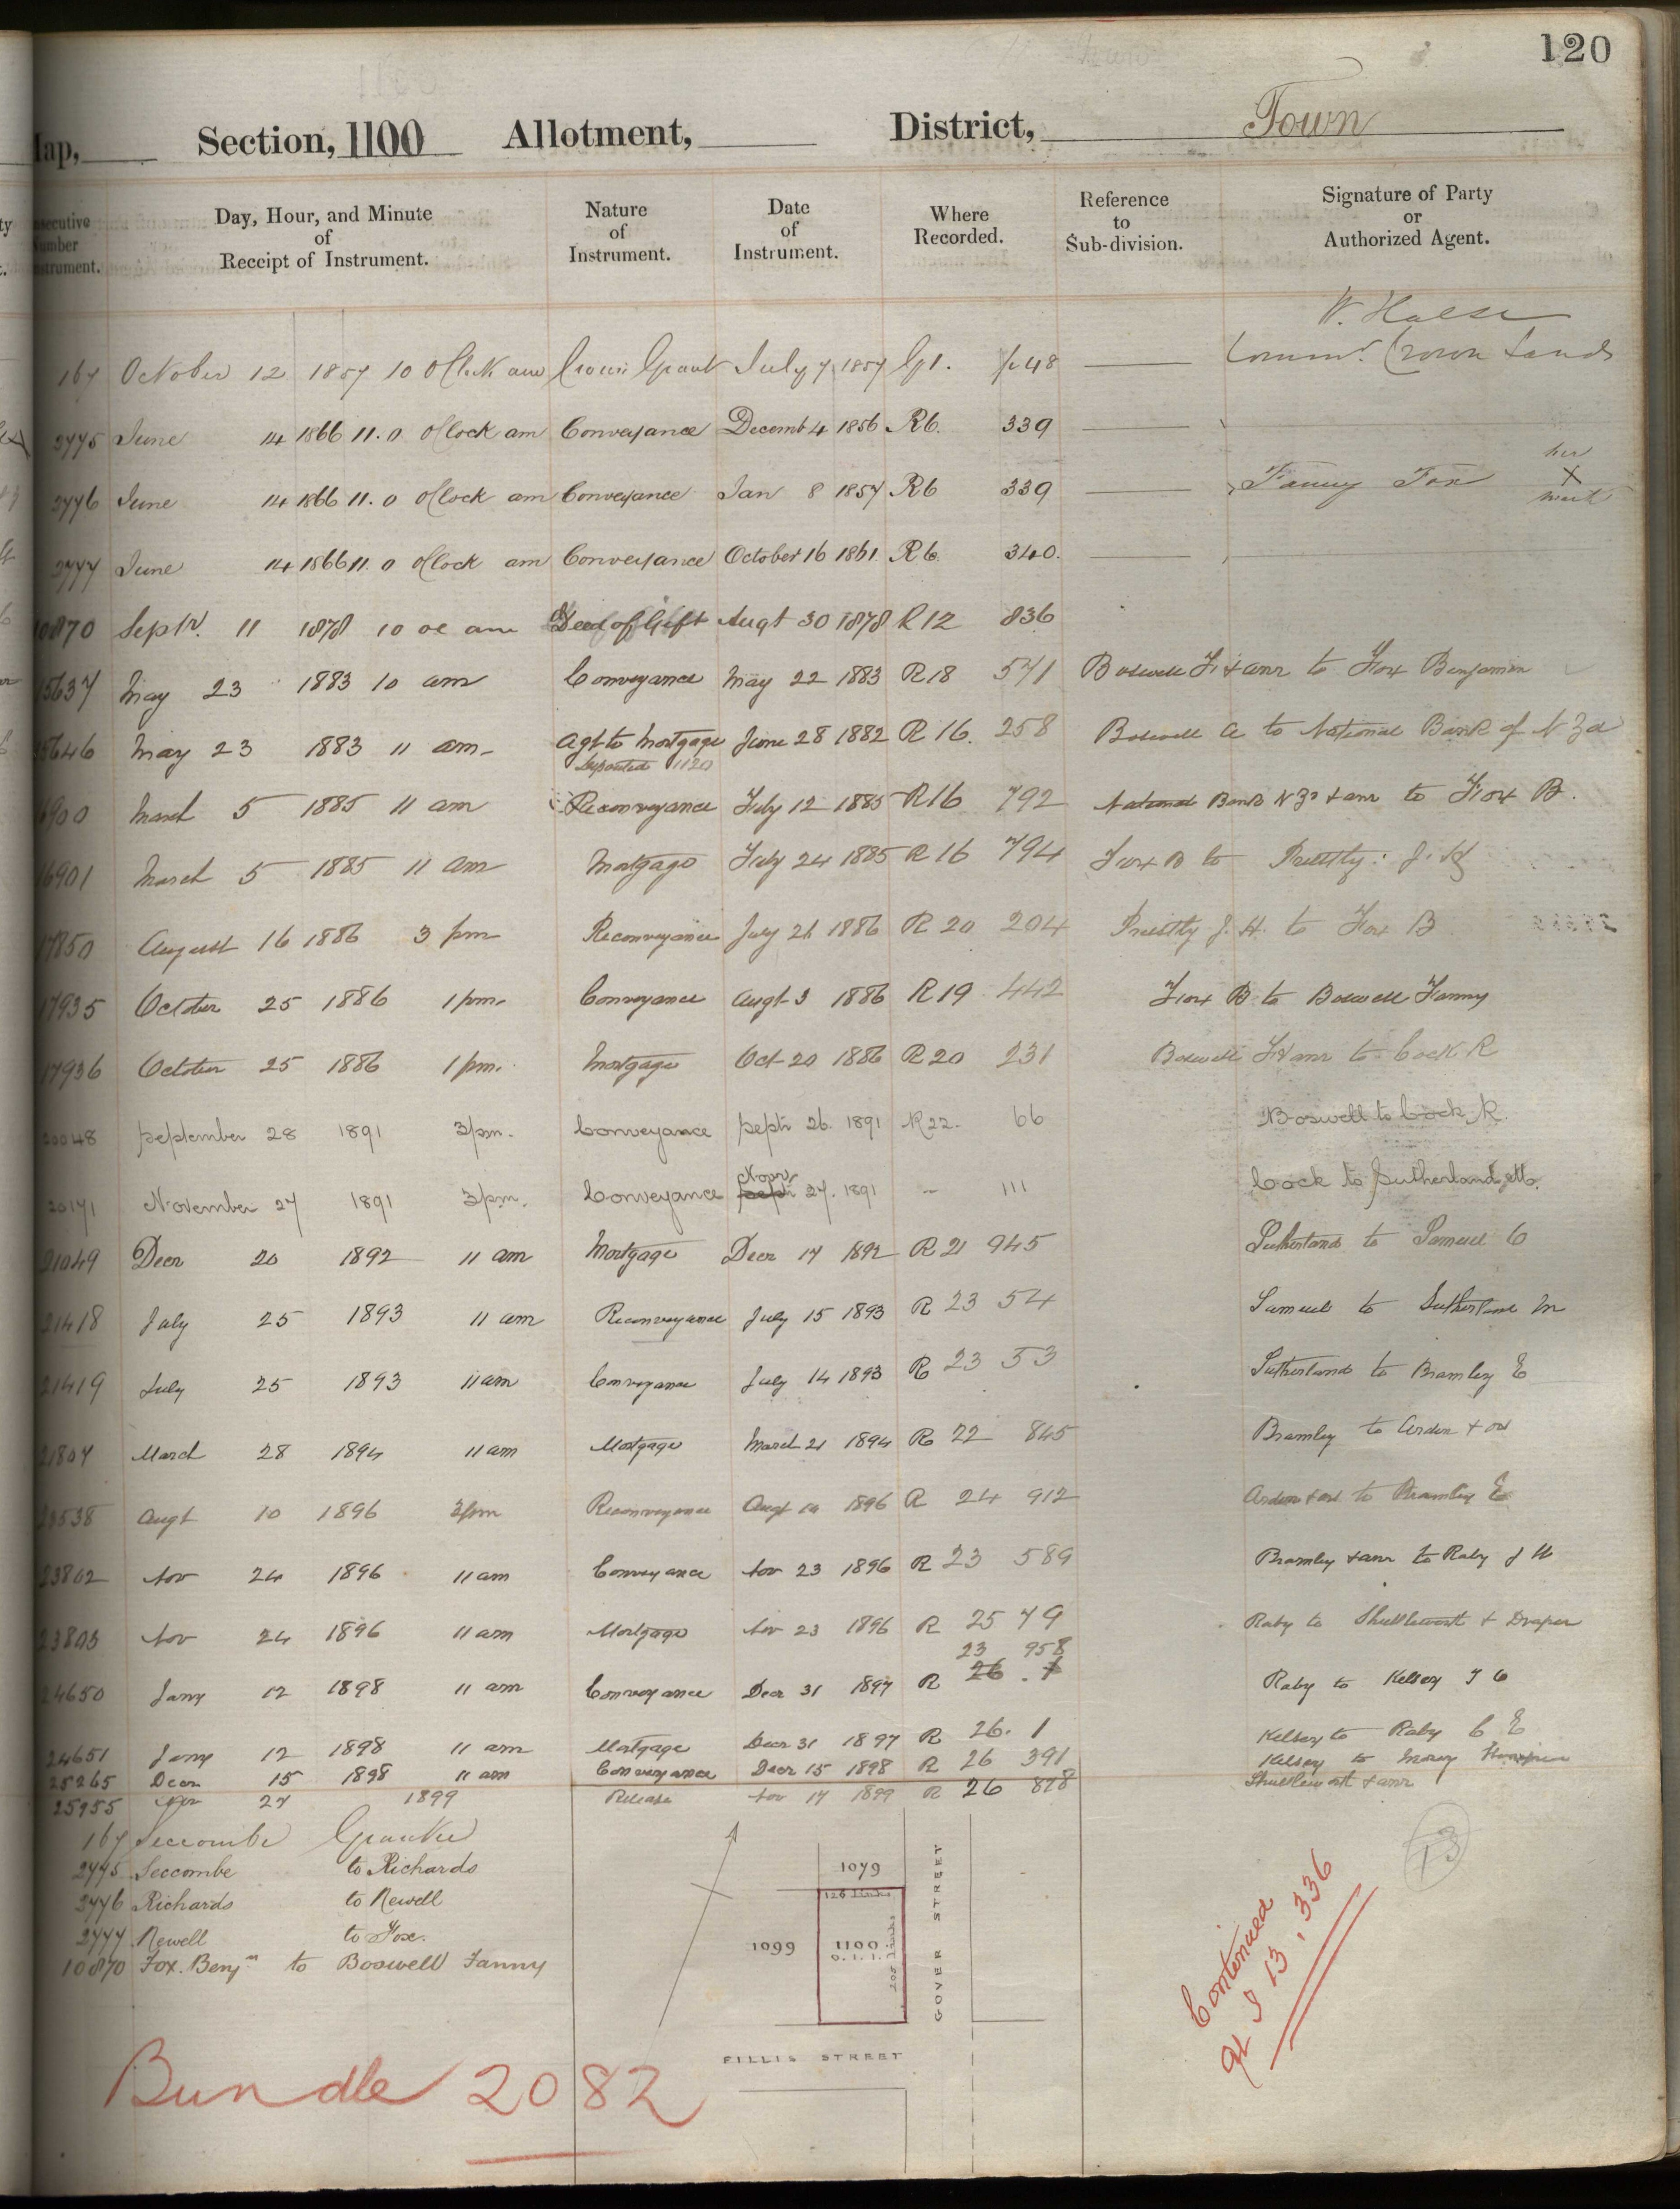 120
Map, Section, 1100 Allotment, District, Town
Consecutive Number Instrument. Day, Hour, and Minute of Receipt of Instrument. Nature of Instrument. Date of Instrument. Where Recorded. Reference to Sub-division. Signature of Party or Authorized Agent.
W. Halse
167 October 12 1857 10 OClock am Crown Grant July 7 1857 G1. p 48 Commr. Crown Lands
2775 June 14 1866 11.0 oClock am Conveyance Decemb 4 1856 R6. 339
2776 June 14 1866 11.0 oClock am Conveyance Jan 8 1857 R6 339 Fanny Fox her X mark
2777 June 14 1866 11.0 oClock am Conveyance October 16 1861 R6. 340.
10870 Septr. 11 1878 10 oc am Deed of Gift Augt 30 1878 R12 836
15637 May 23 1883 10 am Conveyance May 22 1883 R18 571 Boswell F & anr to Fox Benjamin
15646 May 23 1883 11 am Agt to Mortgage June 28 1882 R 16. 258 Boswell A to National Bank of N Zd
Deposited 1120
16900 March 5 1885 11 am Reconveyance Feby 12 1885 R16 792 National Bank N Zd & anr to Fox B.
16901 March 5 1885 11 am Mortgage Feby 24 1885 R 16 794 Fox B to Priestly J. H
17850 August 16 1886 3 pm Reconveyance July 21 1886 R 20 204 Priestly J. H. to Fox B
17935 October 25 1886 1 pm. Conveyance Augt 3 1886 R 19 442 Fox B to Boswell Fanny
17936 October 25 1886 1 pm. Mortgage Oct 20 1886 R 20 231 Boswell F & anr to Cock R
20048 September 28 1891 3 pm. Conveyance Septr 26. 1891 R 22. 66 Boswell to Cock R.
20171 November 27 1891 3 pm. Conveyance Novr 27. 1891 – 111 Cock to Sutherland
21049 Decr 20 1892 11 am Mortgage Decr 17 1892 R 21 945 Sutherland to Samuel O
21418 July 25 1893 11 am Reconveyance July 15 1893 R 23 54 Samuel to Sutherland M
21419 July 25 1893 11 am Conveyance July 14 1893 R 23 53 Sutherland to Bramley E
21807 March 28 1894 11 am Mortgage March 21 1894 R 22 845 Bramley to Arden & or
23538 Augt 10 1896 3 pm Reconveyance Augt 10 1896 R 24 912 Arden & or to Bramley E
23802 Nov 24 1896 11 am Conveyance Nov 23 1896 R 23 589 Bramley & anr to Raby J H
23803 Nov 24 1896 11 am Mortgage Nov 23 1896 R 25 79 Raby to Shuttleworth & Draper
23 958
24650 Jany 12 1898 11 am Conveyance Decr 31 1897 R 26. 1 Raby to Kelsey J C
24651 Jany 12 1898 11 am Mortgage Decr 31 1897 R 26. 1 Kelsey to Raby C E
25265 Decr 15 1898 11 am Conveyance Decr 15 1898 R 26 391 Kelsey to Morey
25955 27 1899 Release Nov 17 1899 R 26 878 Shuttleworth & anr
167 Seccombe Grantee
2775 Seccombe to Richards
2776 Richards to Newell
2777 Newell to Fox.
10870 Fox. Benjn to Boswell Fanny
1079
126 links
1099
1100
0. 1. 1.
205 links
GOVER STREET
FILLIS STREET
13
Continued
at I 13, 336
Bundle 2082